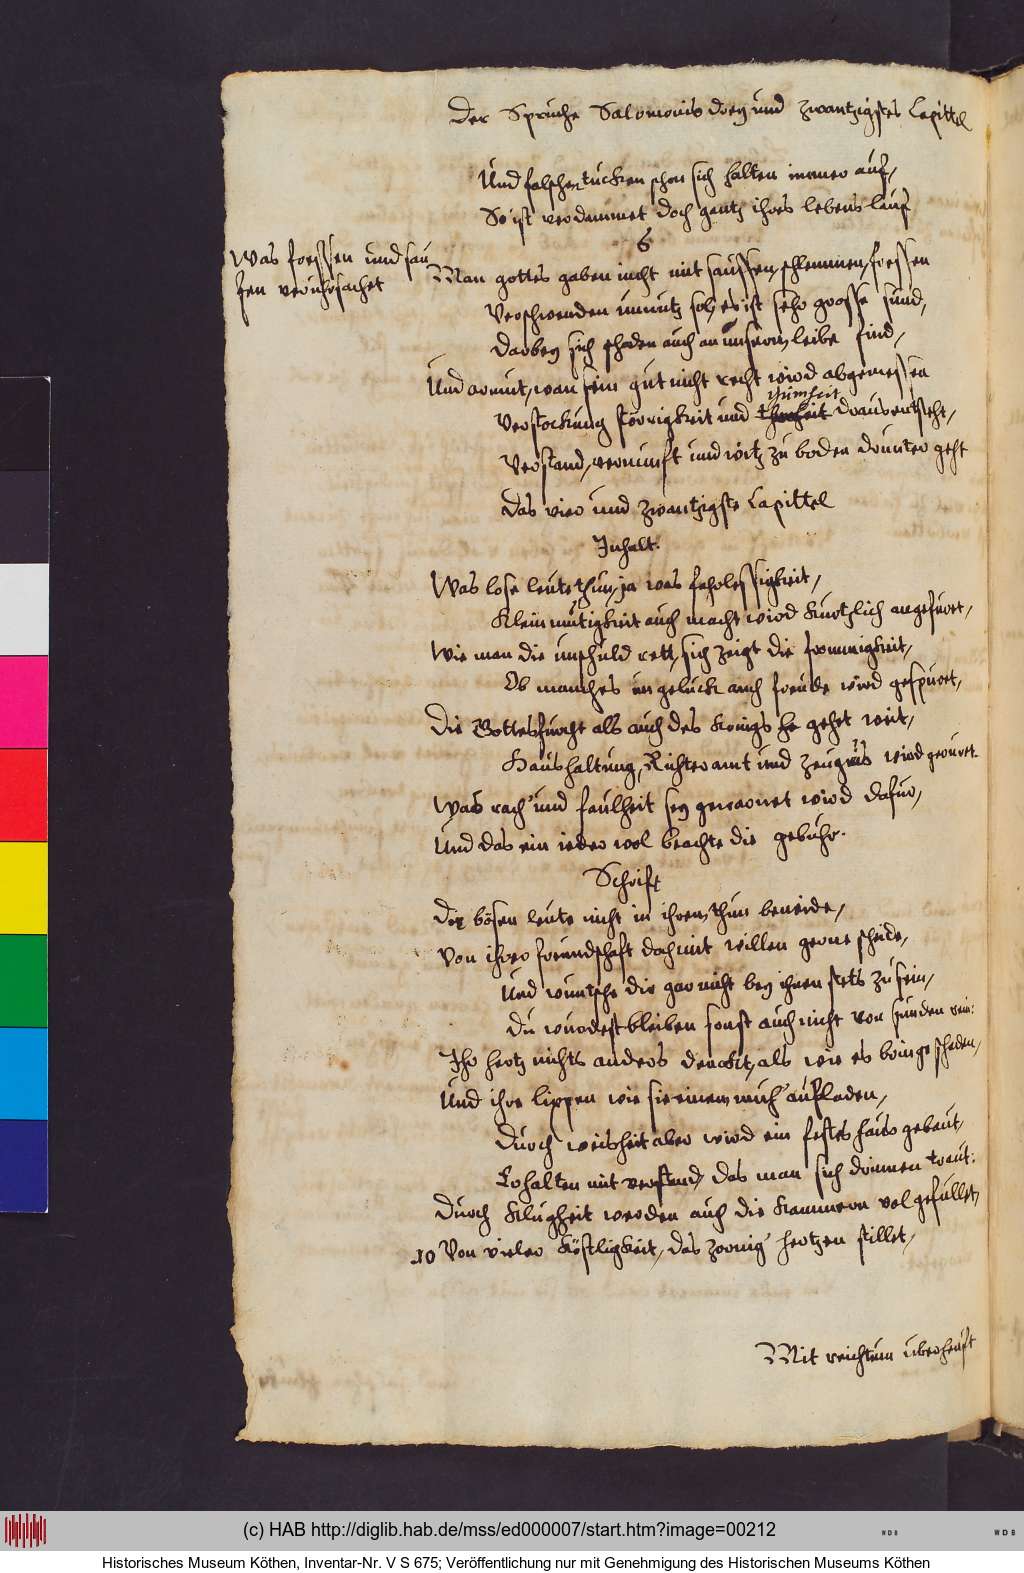 Der Spruche Salomonis drey und zwantzigstes Capittel
Und falsche tucken schon sich halten immer auf,
So ist verdammet doch gantz ihres lebens lauf
6
Was fressen und sau
fen veruhrsachet
Man gottes gaben nicht mit sauffen, schlemmen, fressen
Verschwenden unnutz sol, es ist sehr grosse sund,
Darbey sich schaden auch an unserm leibe find,
Und armut, wan sein gut nicht recht wird abgemessen
Verstockung störrigkeit und thumheit draus entsteht,
Verstand, vernunft und witz zu boden drunter geht
Das vier und zwantzigste Capittel
Inhalt.
Was lose leute thun, ja was fahrlessigkeit,
Kleinmutigkeit auch macht wird kurtzlich angefuret,
Wie man die unschuld rett, sich zeigt die frommigkeit,
Ob manches ungeluck auch freude wird gespuret,
Die Gottesfurcht als auch des Konigs he gehet weit,
Haushaltung, Richteramt und zeugnis wird geruret.
Was rach' und faulheit sey gewarnet wird dafur,
Und das ein ieder wol beachte die gebuhr.
Schrift
Dir bösen leute nicht in ihrem thun beneide,
Von ihrer freundschaft doch mit willen gerne scheide,
Und wuntsche dir gar nicht bey ihnen stets zu sein,
Du wurdest bleiben sonst auch nicht von sunden rein:
Ihr hertz nichts anders denckt, als wie es bringe schaden,
Und ihre lippen wie sie einem muh' aufladen,
Durch weisheit aber wird ein festes haus gebaut,
Erhalten mit verstand, das man sich drinnen traut:
Durch klugheit werden auch die kammern vol gefullet,
10 Von vieler köstligkeit, das zornig' hertzen stillet,
Mit reichtum uberheuft
(c) HAB http://diglib.hab.de/mss/ed000007/start.htm?image=00212
WDB
WDB
Historisches Museum Köthen, Inventar-Nr. V S 675; Veröffentlichung nur mit Genehmigung des Historischen Museums Köthen